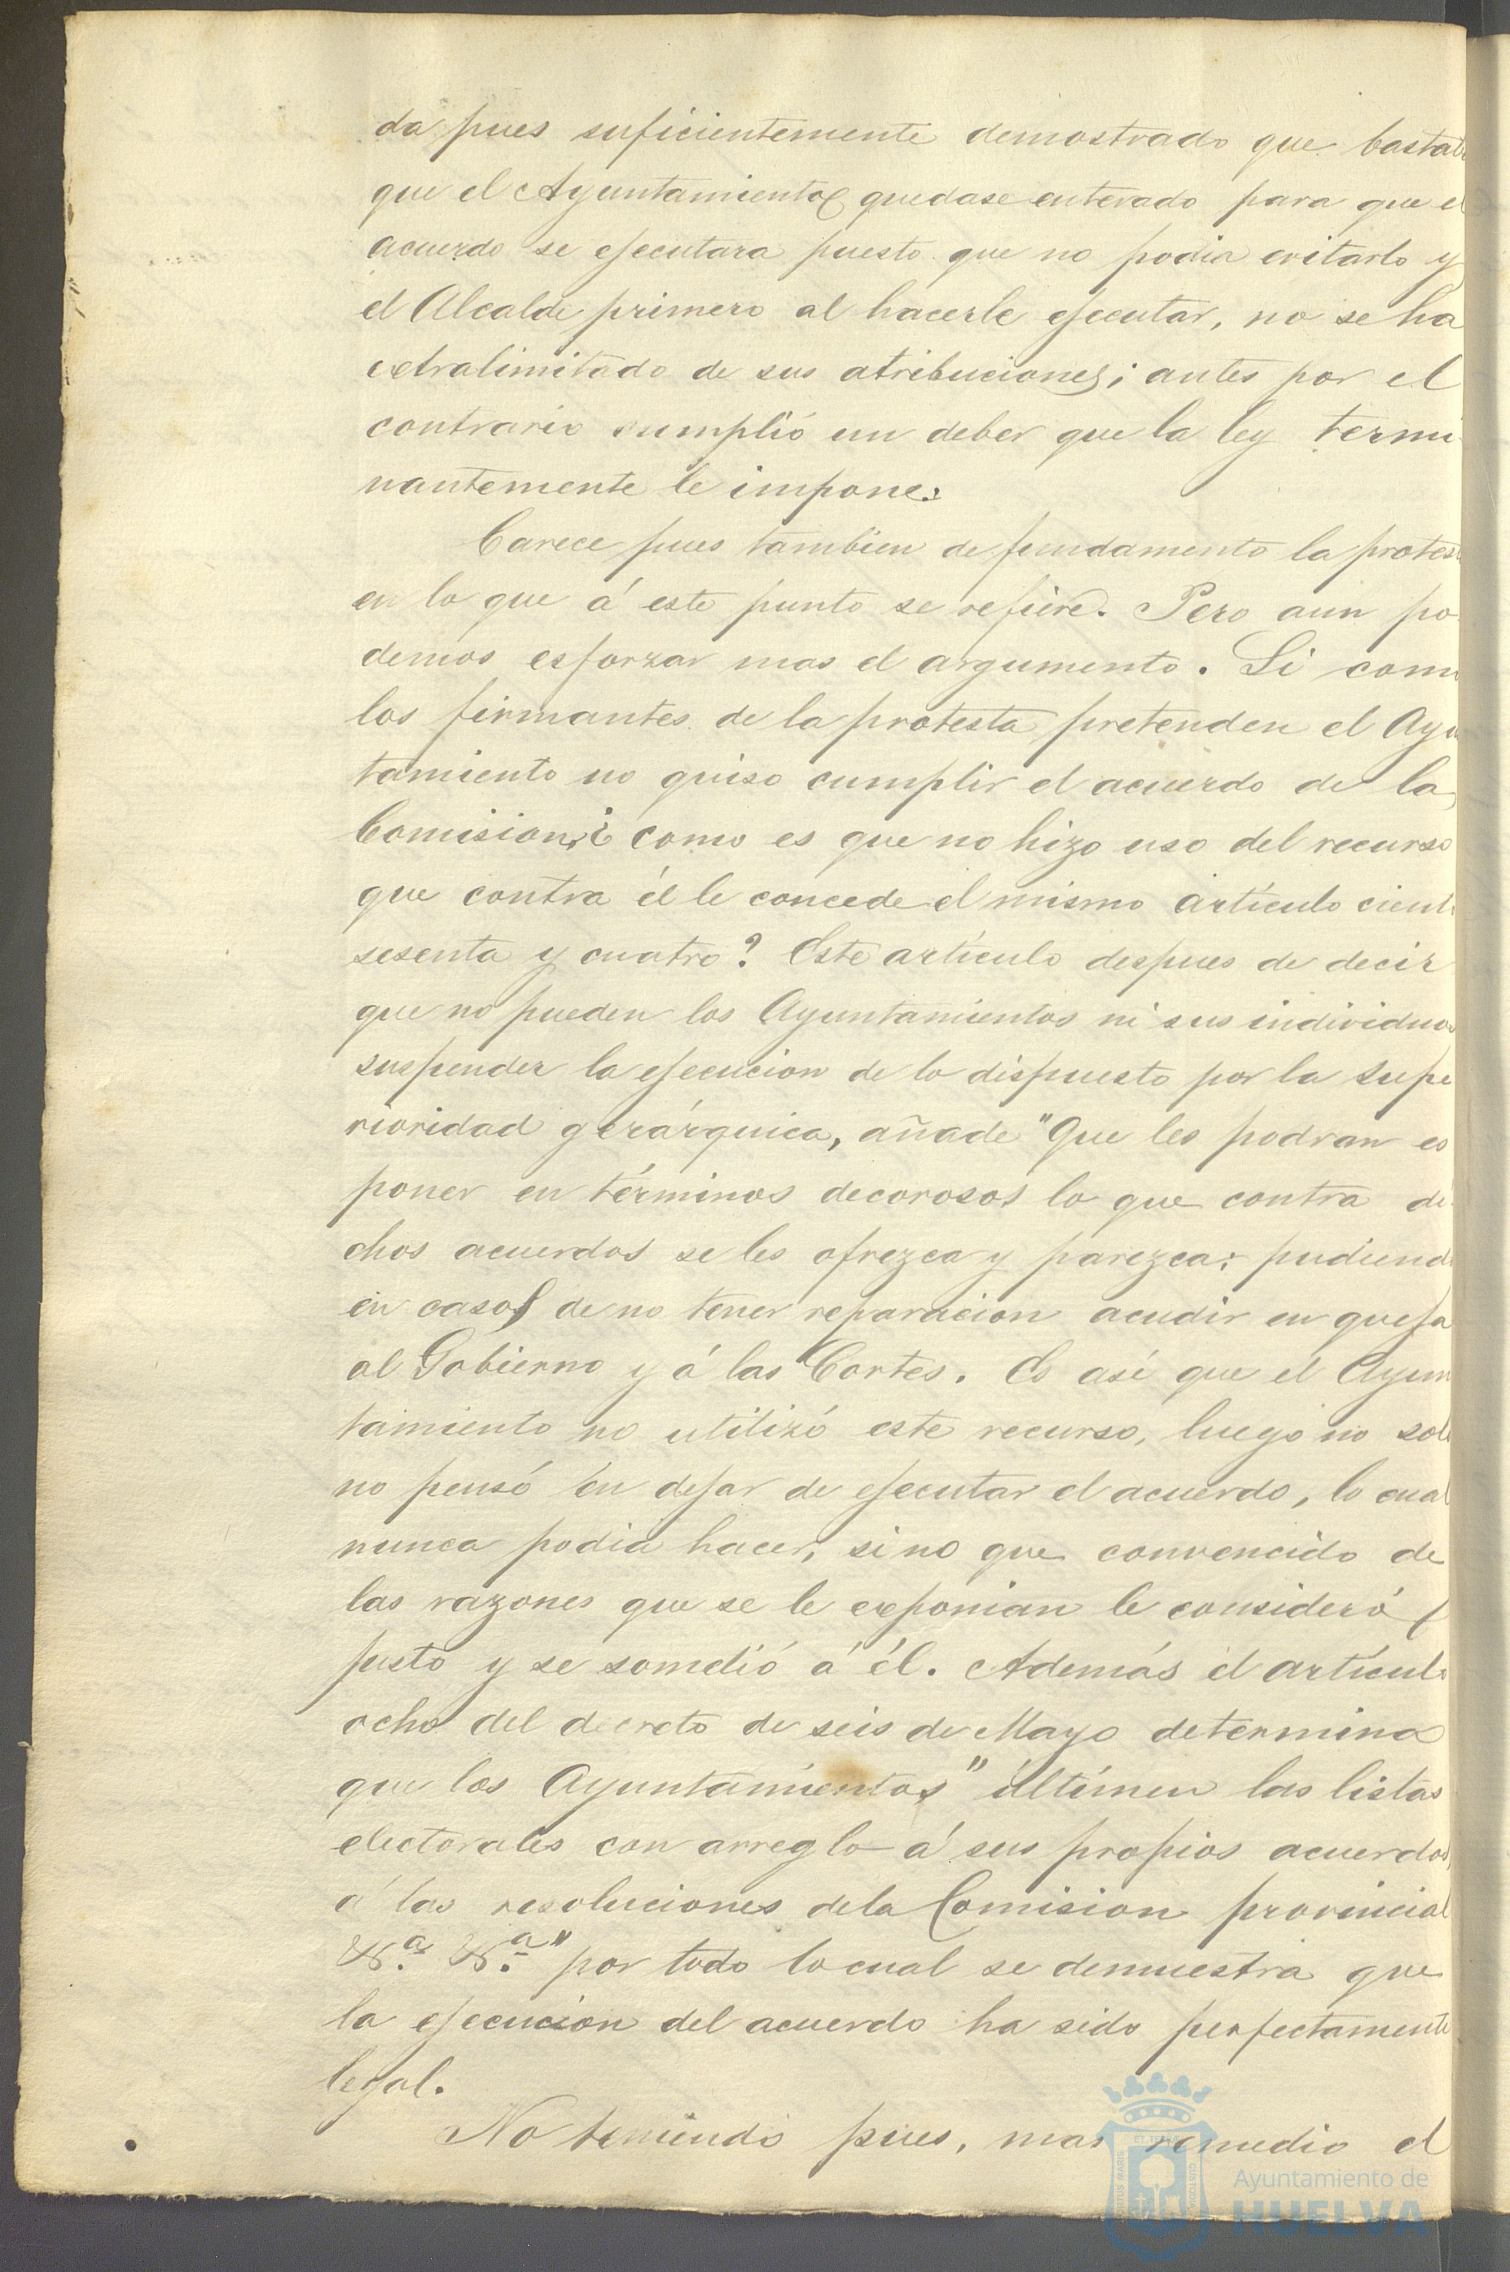 da pues suficientemente demostrado que bastab
que el Ayuntamiento quedase enterado para que e
acuerdo se ejecutara puesto que no podia evitarlo y
el Alcalde primero al hacerle ejecutar, no se ha
extralimitado de sus atribuciones; antes por el
contrario cumplió un deber que la ley termi
nantemente le impone.
Carece pues tambien de fundamento la protes
en lo que á este punto se refiere. Pero aun po
demos esforzar mas el argumento. Si com
los firmantes de la protesta pretenden el Ayu
tamiento no quiso cumplir el acuerdo de la
Comision, ¿como es que no hizo uso del recurso
que contra él le concede el mismo artículo cient
sesenta y cuatro? Este artículo despues de decir
que no pueden los Ayuntamientos ni sus individuos
suspender la ejecucion de lo dispuesto por la supe
rioridad gerárquica, añade "Que les podran es
poner en términos decorosos lo que contra di
chos acuerdos se les ofrezca y parezca; pudiend
en caso de no tener reparacion acudir en queja
al Gobierno y á las Cortes. Es asi que el Ayun
tamiento no utilizó este recurso, luego no sol
no pensó en dejar de ejecutar el acuerdo, lo cual
nunca podia hacer, sino que convencido de
las razones que se le exponian le consideró
justo y se sometió á él. Además el artícul
ocho del decreto de seis de Mayo determina
que los Ayuntamientos "ultímen las listas
electorales con arreglo á sus propios acuerdos,
á las resoluciones de la Comision provincial
&.ª &.ª" por todo lo cual se demuestra que
la ejecucion del acuerdo ha sido perfectamente
legal.
No teniendo pues, mas remedio el
Ayuntamiento de
HUELVA